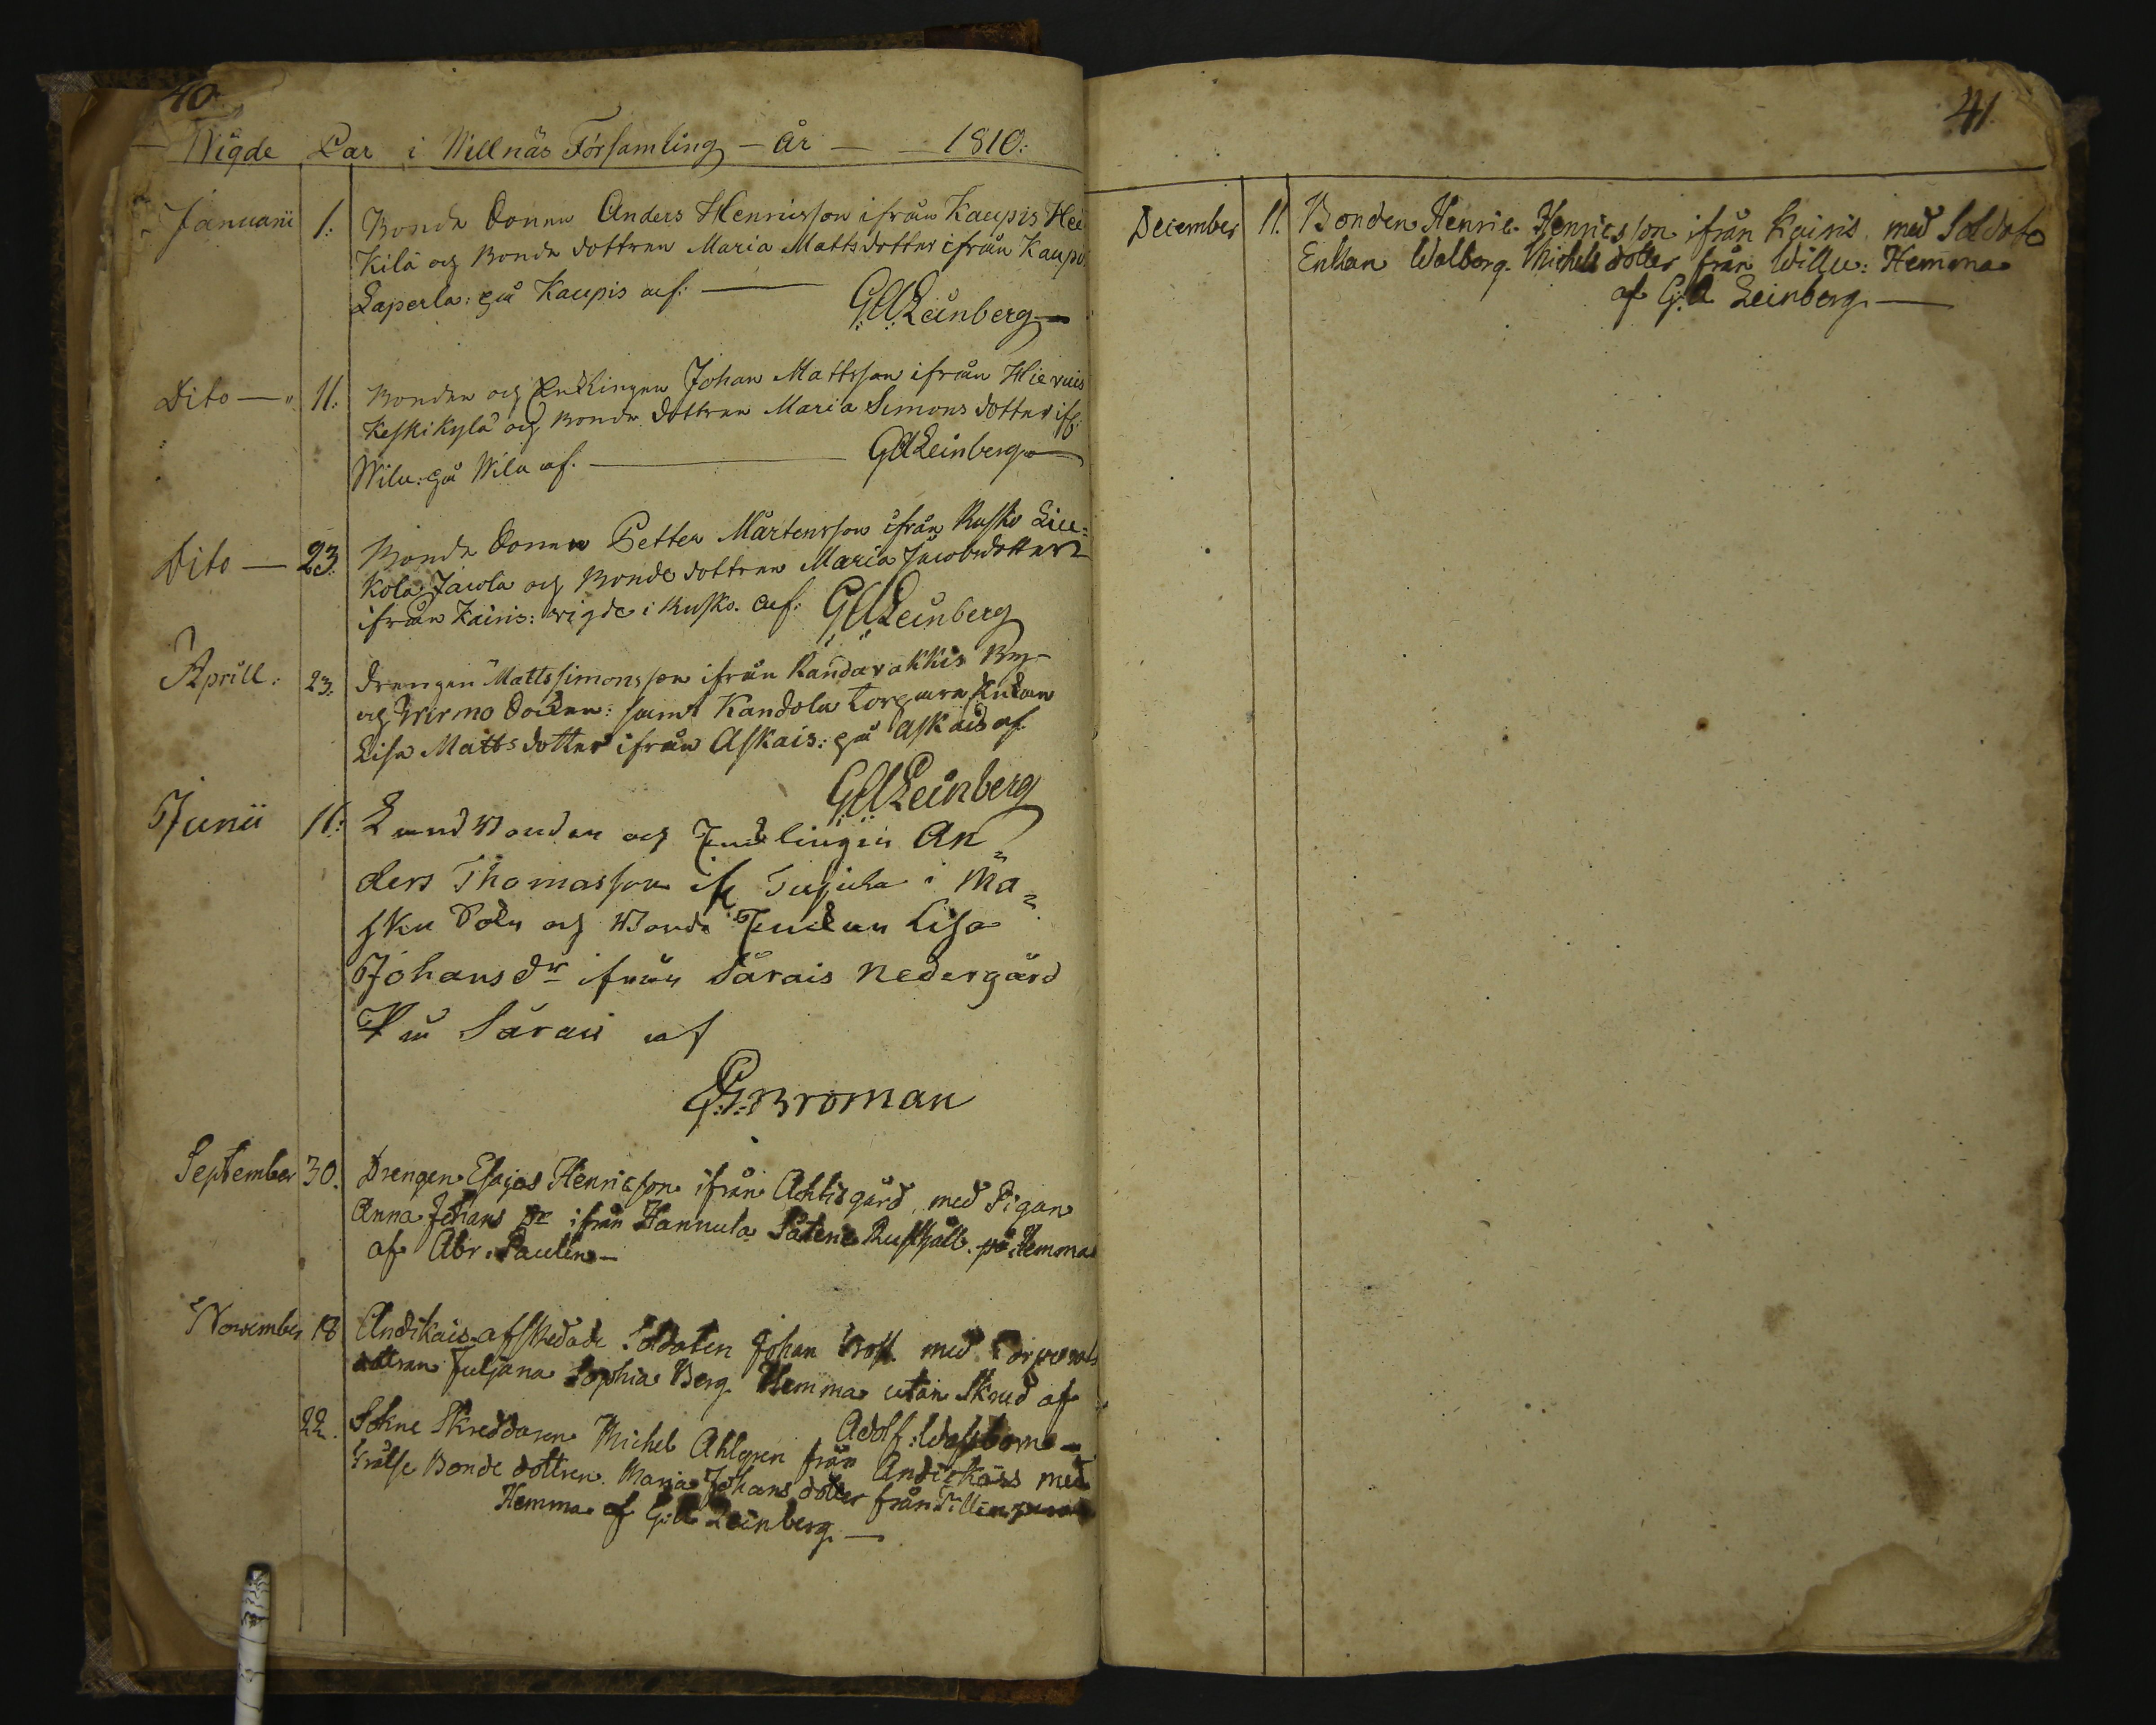 40.
Wigde Par i Willnäs Församling - år - - 1810:
Januarii 1: Bonde Sonen Anders Henricsson ifrån Kaupis Hei
Kilä och Bonde dottren Maria Matts dotter ifrån Kaupis
Laperla: på Kaupis af: G:A:Leinberg
Dito 11: Bonden och Enklingen Johan Mattsson ifrån Hiervis
Keskikylä och Bonde dottren Maria Simons dotter ifr:
Wilu: på Wilu af. G A Leinberg
Dito 23: Bonde Sonen Petter Mårtensson ifrån Rusko Liu=
Kola Jacola och Bonde dottren Maria Jacobsdotter
ifrån Kairis: vigde i Rusko. af: G A Leinberg
Aprill: 23: drengen Matts Simonsson ifrån Kandarakkis By
och Wirmo Socken: samt Kandola Torpare Enkan
Lisa Matts dotter ifrån Askais: på Askais af.
G:A:Leinberg
Junii 11: Landbonden och Enklingen An=
ders Thomasson ifr i Ma=
sku Sokn och Bonde Enkan Lisa
Johans dr ifrån Särais Nedergård
På Särais af
Broman
September 30. Drengen Esajas Henricson ifrån Achtisgård, med Pigan
Anna Johans Dr ifrån Hannula Säteri Rusthåll. på Hemma
af Abr. Paulin
November 18 Andikais afskedade Soldaten Johan Frost. med Corporals
dottran Juljana Sophia Berg. Hemma utan Skrud af
Adolf:
22. Sokne Skreddaren Michel Ahlgren från Andikais med
Frälse Bonde dottren. Maria Johans dotter från
Hemma af G:A Leinberg.
41.
December 11. Bonden Henric Henricsson ifrån Kairis, med Soldats
Enkan Walborg. Michels dotter från Willu: Hemma
af G:A Leinberg